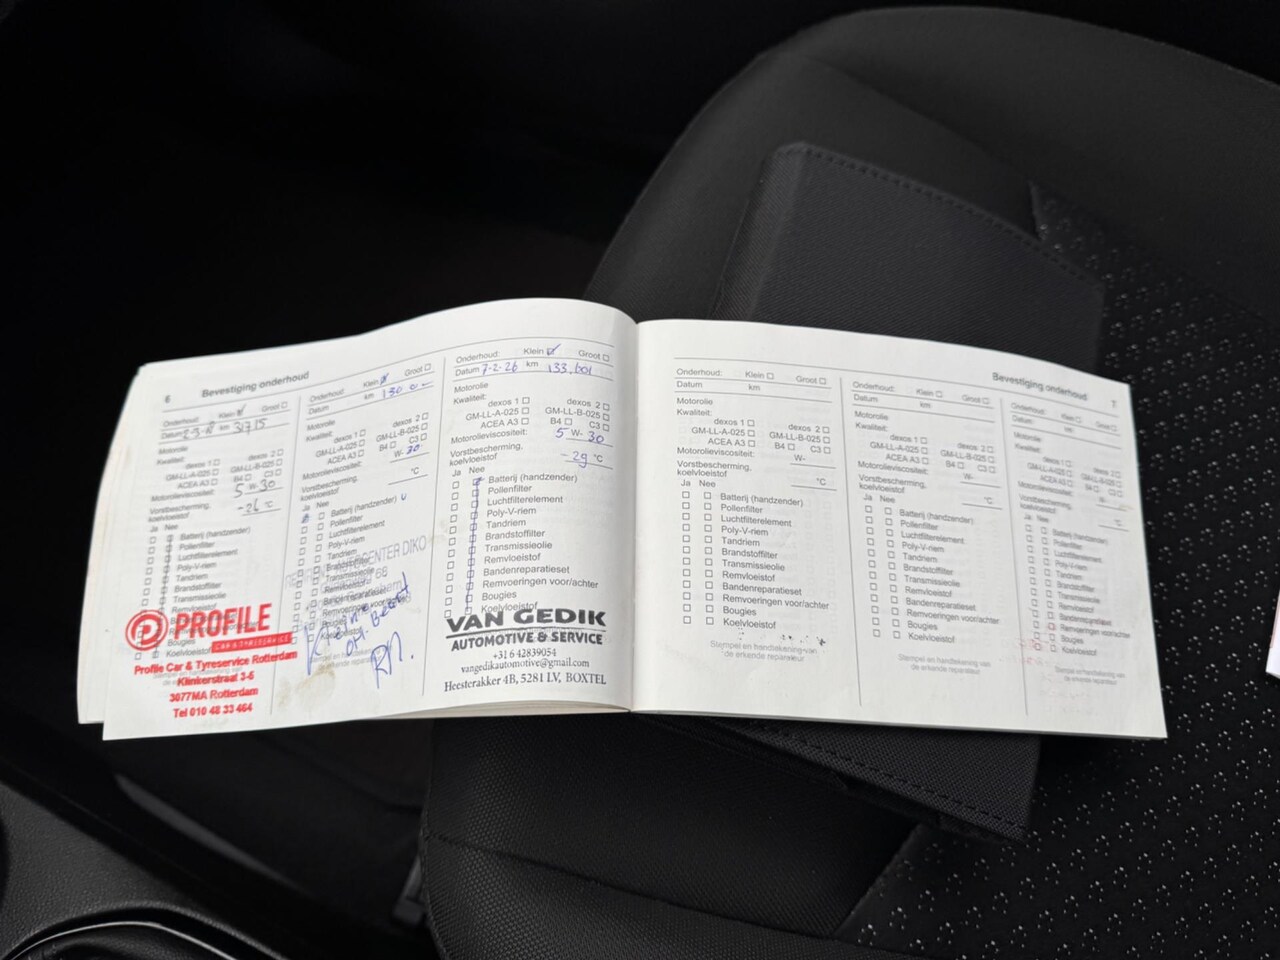 6
Bevestiging onderhoud
Onderhoud: Klein Groot
Datum km
Motorolie
Kwaliteit:
dexos 1 dexos 2
GM-LL-A-025 GM-LL-B-025
ACEA A3 B4 C3
Motorolieviscositeit: 5 W- 30
Vorstbescherming,
koelvloeistof -26 °C
Ja Nee
Batterij (handzender)
Pollenfilter
Luchtfilterelement
Poly-V-riem
Tandriem
Brandstoffilter
Transmissieolie
Remvloeistof
Bougies
Koelvloeistof
PROFILE
CAR & TYRESERVICE
Profile Car & Tyreservice Rotterdam
Klinkerstraat 3-5
3077MA Rotterdam
Tel 010 48 33 464
Onderhoud: Klein Groot
Datum km
Motorolie
Kwaliteit:
dexos 1 dexos 2
GM-LL-A-025 GM-LL-B-025
ACEA A3 B4 C3
Motorolieviscositeit: W- 30
Vorstbescherming,
koelvloeistof °C
Ja Nee
Batterij (handzender)
Pollenfilter
Luchtfilterelement
Poly-V-riem
Tandriem
Brandstoffilter
Transmissieolie
Remvloeistof
Bandenreparatieset
Remvoeringen voor/achter
Bougies
Koelvloeistof
Onderhoud: Klein Groot
Datum 7-2-26 km 133.601
Motorolie
Kwaliteit:
dexos 1 dexos 2
GM-LL-A-025 GM-LL-B-025
ACEA A3 B4 C3
Motorolieviscositeit: 5 W- 30
Vorstbescherming,
koelvloeistof -29 °C
Ja Nee
Batterij (handzender)
Pollenfilter
Luchtfilterelement
Poly-V-riem
Tandriem
Brandstoffilter
Transmissieolie
Remvloeistof
Bandenreparatieset
Remvoeringen voor/achter
Bougies
Koelvloeistof
VAN GEDIK
AUTOMOTIVE & SERVICE
+31 6 42839054
vangedikautomotive@gmail.com
Heesterakker 4B, 5281 LV, BOXTEL
Bevestiging onderhoud 7
Onderhoud: Klein Groot
Datum km
Motorolie
Kwaliteit:
dexos 1 dexos 2
GM-LL-A-025 GM-LL-B-025
ACEA A3 B4 C3
Motorolieviscositeit: W-
Vorstbescherming,
koelvloeistof °C
Ja Nee
Batterij (handzender)
Pollenfilter
Luchtfilterelement
Poly-V-riem
Tandriem
Brandstoffilter
Transmissieolie
Remvloeistof
Bandenreparatieset
Remvoeringen voor/achter
Bougies
Koelvloeistof
Stempel en handtekening van
de erkende reparateur
Onderhoud: Klein Groot
Datum km
Motorolie
Kwaliteit:
dexos 1 dexos 2
GM-LL-A-025 GM-LL-B-025
ACEA A3 B4 C3
Motorolieviscositeit: W-
Vorstbescherming,
koelvloeistof °C
Ja Nee
Batterij (handzender)
Pollenfilter
Luchtfilterelement
Poly-V-riem
Tandriem
Brandstoffilter
Transmissieolie
Remvloeistof
Bandenreparatieset
Remvoeringen voor/achter
Bougies
Koelvloeistof
Stempel en handtekening van
de erkende reparateur
Onderhoud: Klein Groot
Datum km
Motorolie
Kwaliteit:
dexos 1 dexos 2
GM-LL-A-025 GM-LL-B-025
ACEA A3 B4 C3
Motorolieviscositeit: W-
Vorstbescherming,
koelvloeistof °C
Ja Nee
Batterij (handzender)
Pollenfilter
Luchtfilterelement
Poly-V-riem
Tandriem
Brandstoffilter
Transmissieolie
Remvloeistof
Bandenreparatieset
Remvoeringen voor/achter
Bougies
Koelvloeistof
Stempel en handtekening van
de erkende reparateur